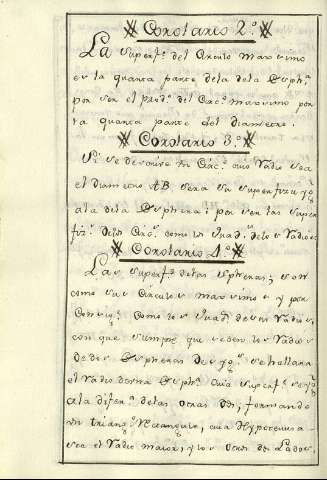 Corolario 2.º
La superf.e del Circulo maximo
es la quarta parte dela dela Esph.ª
por ser el prod.º del Circ.º maximo por
la quarta parte del diametro.
Corolario 3.º
Si se descrive un Circ.º cuio Radio sea
el diametro AB sera su superficie yg.l
ala dela Esphera: por ser las super
fiz.s delos Circ.os como los quad.s delos Radios
Corolario 4.º
Las superf.s delas espheras, son
como sus Circulos maximos y por
Consig.te como los quad.s de sus Radios,
con que siempre que se den los Radios
de dos Espheras se hallara
el Radio de otra Esph.ª cuia superf.e sea yg.l
ala difer.ª delas otras dos, formando
un triang.º Rectangulo, cuia Hypotenusa
sea el Radio maior, y los otros dos Lados,